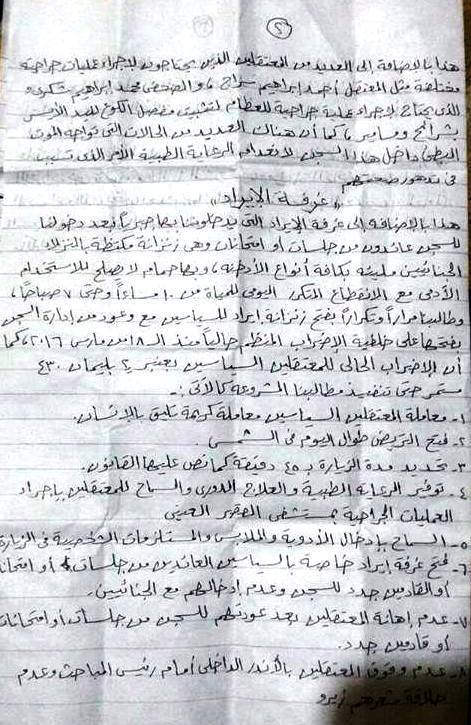 (٢)
هذا بالإضافة إلى العديد من المعتقلين الذين يحتاجون لإجراء عمليات جراحية
مختلفة مثل المعتقل أحمد إبراهيم سراج، والصحفي محمد إبراهيم
الذي يحتاج لإجراء عملية جراحية للعظام لتثبيت مفصل الكوع لليد
بشرائح ومسامير، كما أن هناك العديد من الحالات التي تواجه الموت
البطئ داخل هذا السجن لانعدام الرعاية الطبية الأمر الذي تسبب
في تدهور صحتهم
"غرفة الإيراد"
هذا بالإضافة إلى غرفة الإيراد التي يدخلوننا بها جبرياً بعد دخولنا
للسجن عائدون من جلسات أو امتحانات وهي زنزانة مكتظة بالنزلاء
الجنائيين مليئة بكافة أنواع الأدخنة، وبها حمام لا يصلح للاستخدام
الآدمي مع الانقطاع المتكرر اليومي للمياة من ١٠ مساءاً وحتى ٧ صباحاً،
وطالبنا مراراً وتكراراً بفتح زنزانة إيراد للسياسين مع وعود من إدارة السجن
بفتحها على خلفية الإضراب المنظم حالياً منذ الـ ١٨ من مارس ٢٠١٦، كما
أن الإضراب الحالي للمعتقلين السياسين بعنبر ٢ بليمان ٤٣٠
مستمر حتى تنفيذ مطالبنا المشروعة كالآتي :-
١- معاملة المعتقلين السياسين معاملة كريمة تليق بالإنسان.
٢- فتح التريض طوال اليوم في الشمس.
٣- تحديد مدة الزيارة بـ ٤٥ دقيقة كما نص عليها القانون.
٤- توفير الرعاية الطبية والعلاج الدوري والسماح للمعتقلين بإجراء
العمليات الجراحية بمستشفى القصر العيني
٥- السماح بإدخال الأدوية والملابس والمستلزمات الشخصية في الزيارة
٦- فتح غرفة إيراد خاصة بالسياسين العائدين من جلسات أو امتحانات
أو القادمين جدد للسجن وعدم إدخالهم مع الجنائيين.
٧- عدم إهانة المعتقلين بعد عودتهم للسجن من جلسات أو امتحانات
أو قادمين جدد.
٨- عدم وقوف المعتقلين بالأندر الداخلي أمام رئيس المباحث وعدم
حلاقة شعرهم زيرو